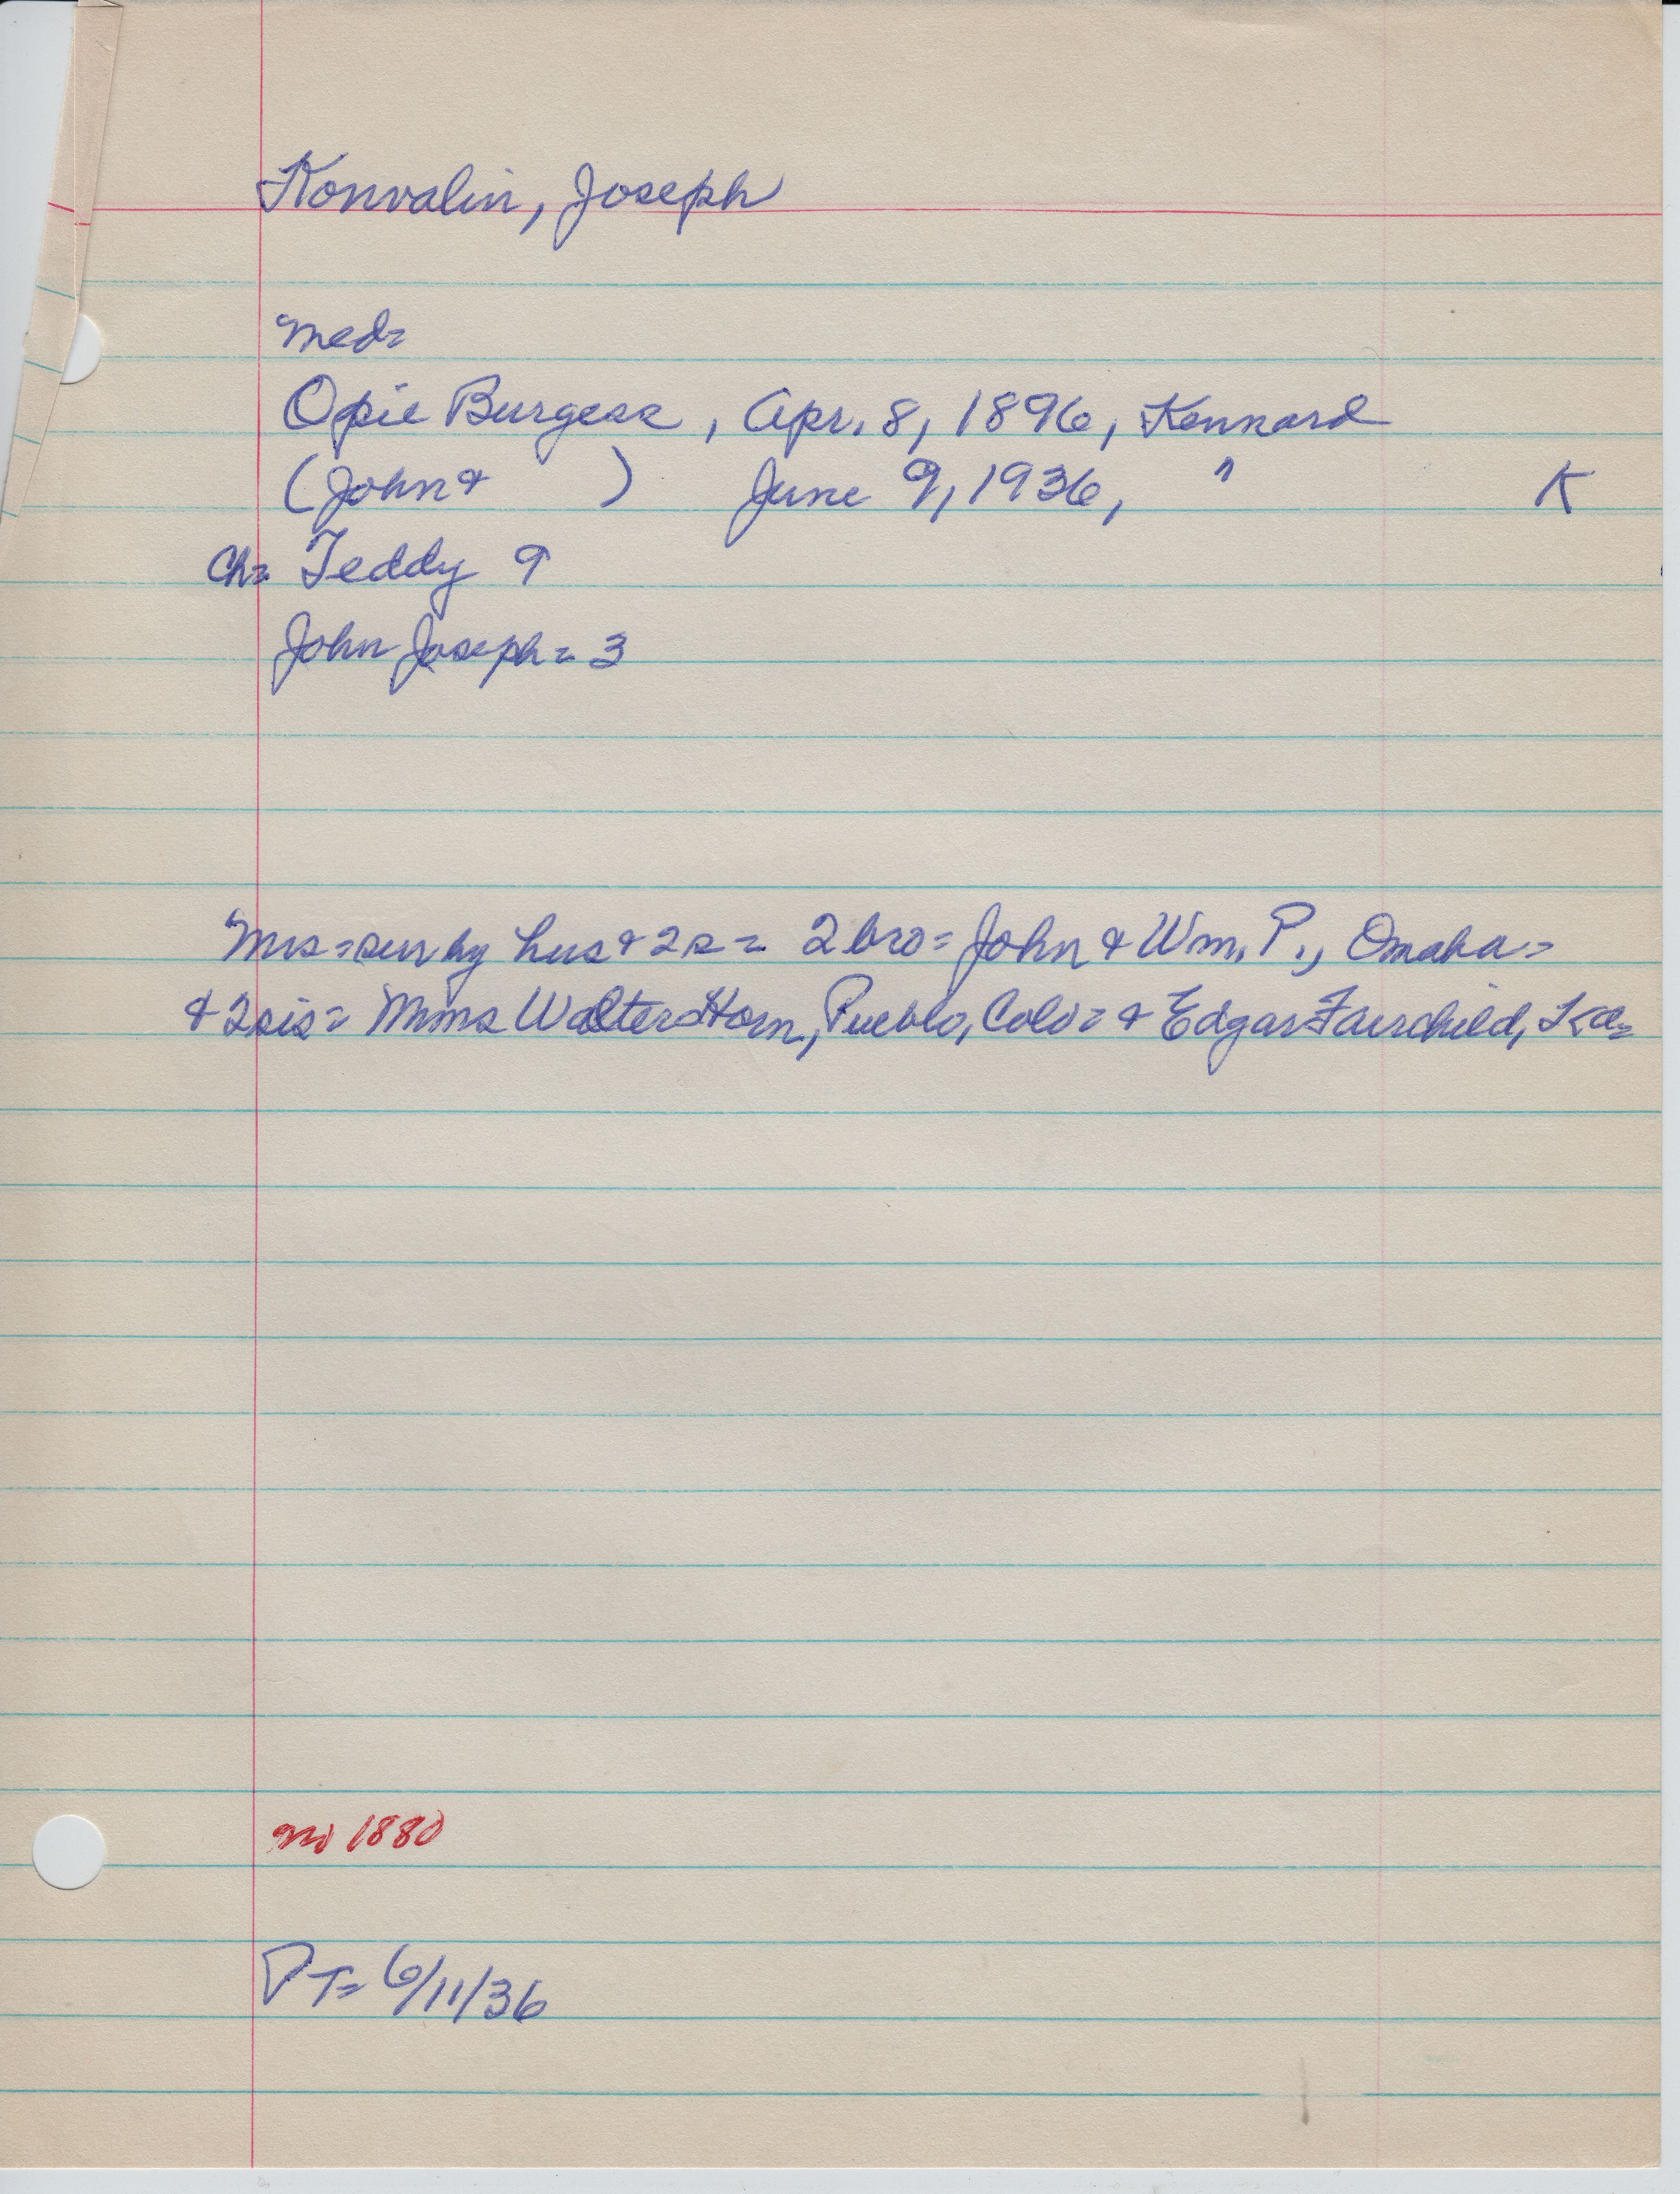 Konvalin, Joseph
Med=
Opie Burgess, Apr. 8, 1896, Kennard
(John & ) June 9, 1936, " K
Ch= Teddy 9
John Joseph = 3
Mrs = sur by hus & 2 s = 2 bro = John & Wm. P., Omaha =
& 2 sis = Mmes Walter Horn, Pueblo, Colo = & Edgar Fairchild,
1880
PT= 6/11/36